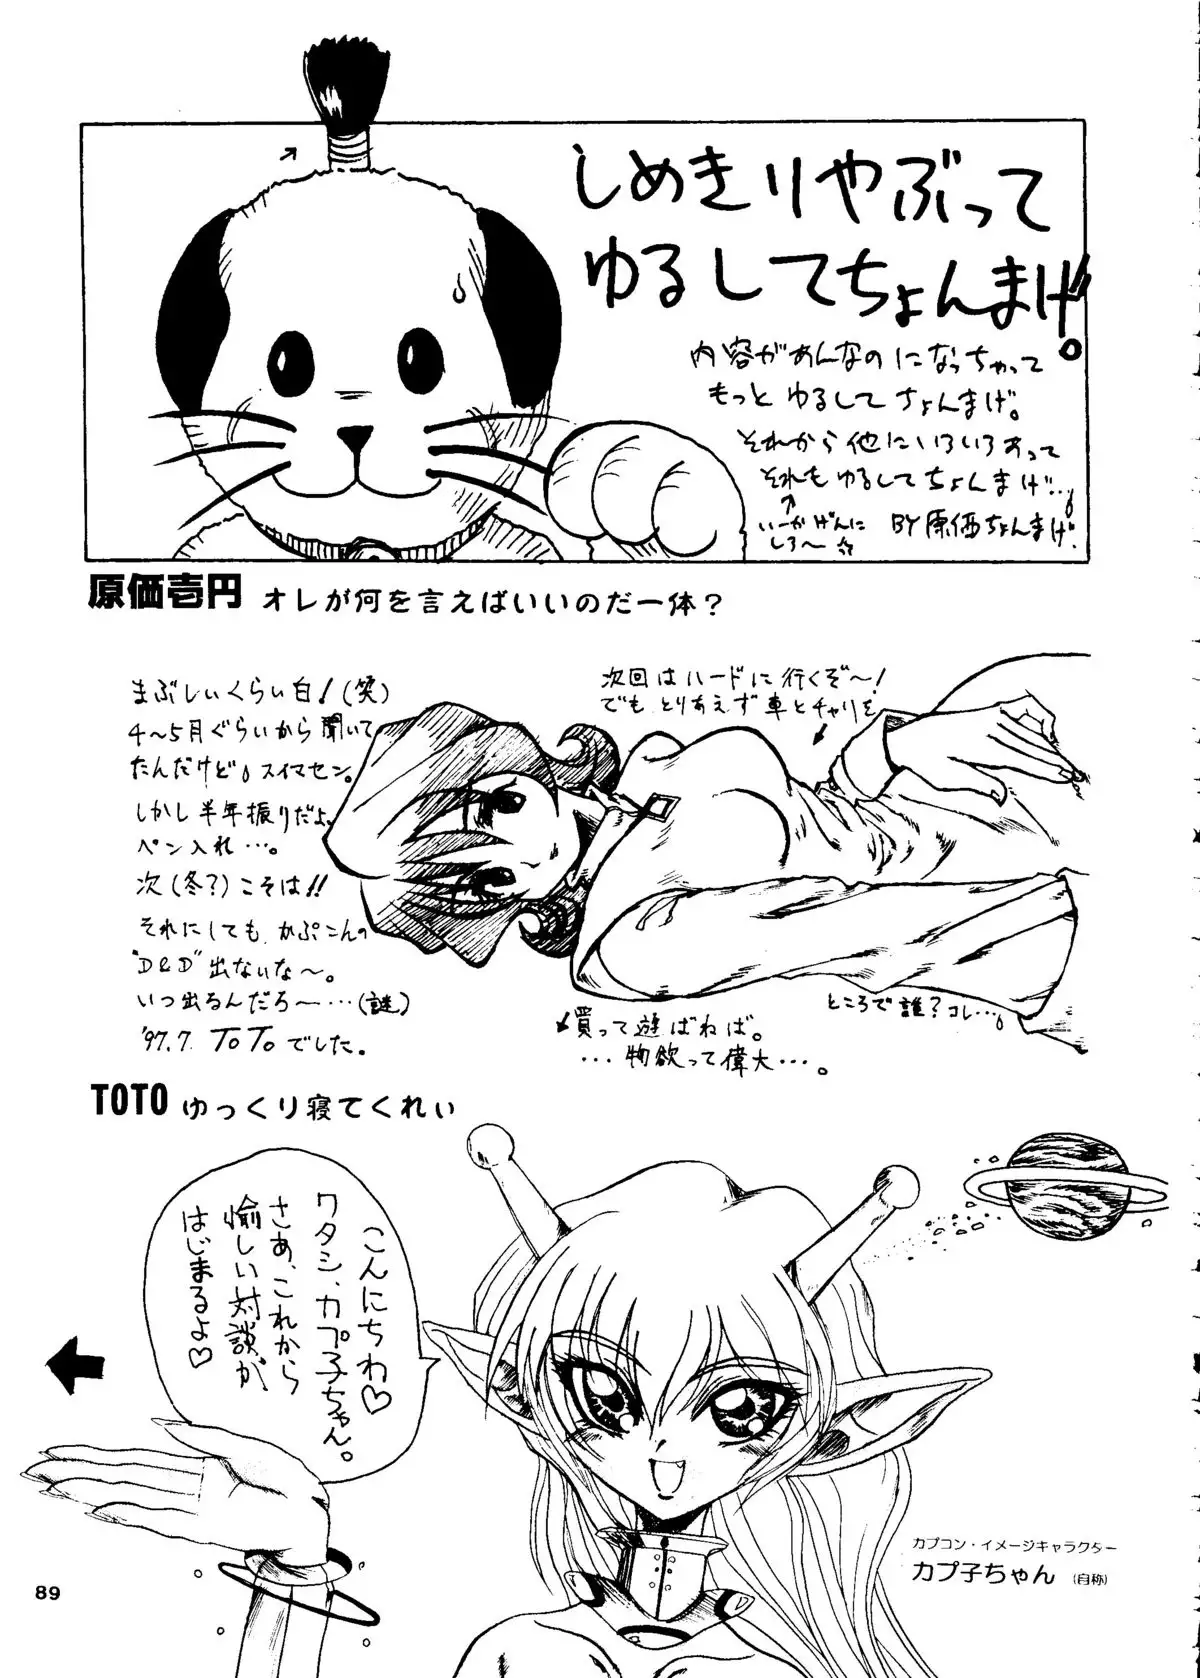 しめきりやぶって
ゆるしてちょんまげ。
内容があんなのになっちゃって
もっとゆるしてちょんまげ。
それから他にいろいろあって
それもゆるしてちょんまげ…。
いーかげんに
しろ〜☆
BY原価ちょんまげ.
原価壱円 オレが何を言えばいいのだ一体？
まぶしいくらい白！(笑)
4〜5月ぐらいから聞いて
たんだけど。スイマセン。
しかし半年振りだよ、
ペン入れ…。
次(冬?)こそは!!
それにしても、かぷこんの
"D&D"出ないな〜。
いつ出るんだろ〜…(謎)
'97.7. TOTOでした。
次回はハードに行くぞ〜！
でもとりあえず車とチャリを
買って遊ばねば。
…物欲って偉大…。
ところで誰？コレ…。
TOTO ゆっくり寝てくれい
こんにちわ♡
ワタシ、カプ子ちゃん。
さあ、これから
愉しい対談が、
はじまるよ♡
カプコン・イメージキャラクター
カプ子ちゃん (自称)
89